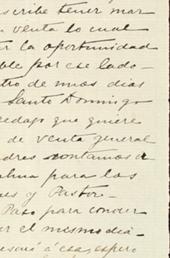 scribe tener mar
venta lo cual
la oportunidad
ble por ese lado-
tro de unos dias
Santo Domingo
que quiere
de venta general
contamos a
para las
y Pastor-
Paso para conocer
er el mismo dia-
a esa, espero